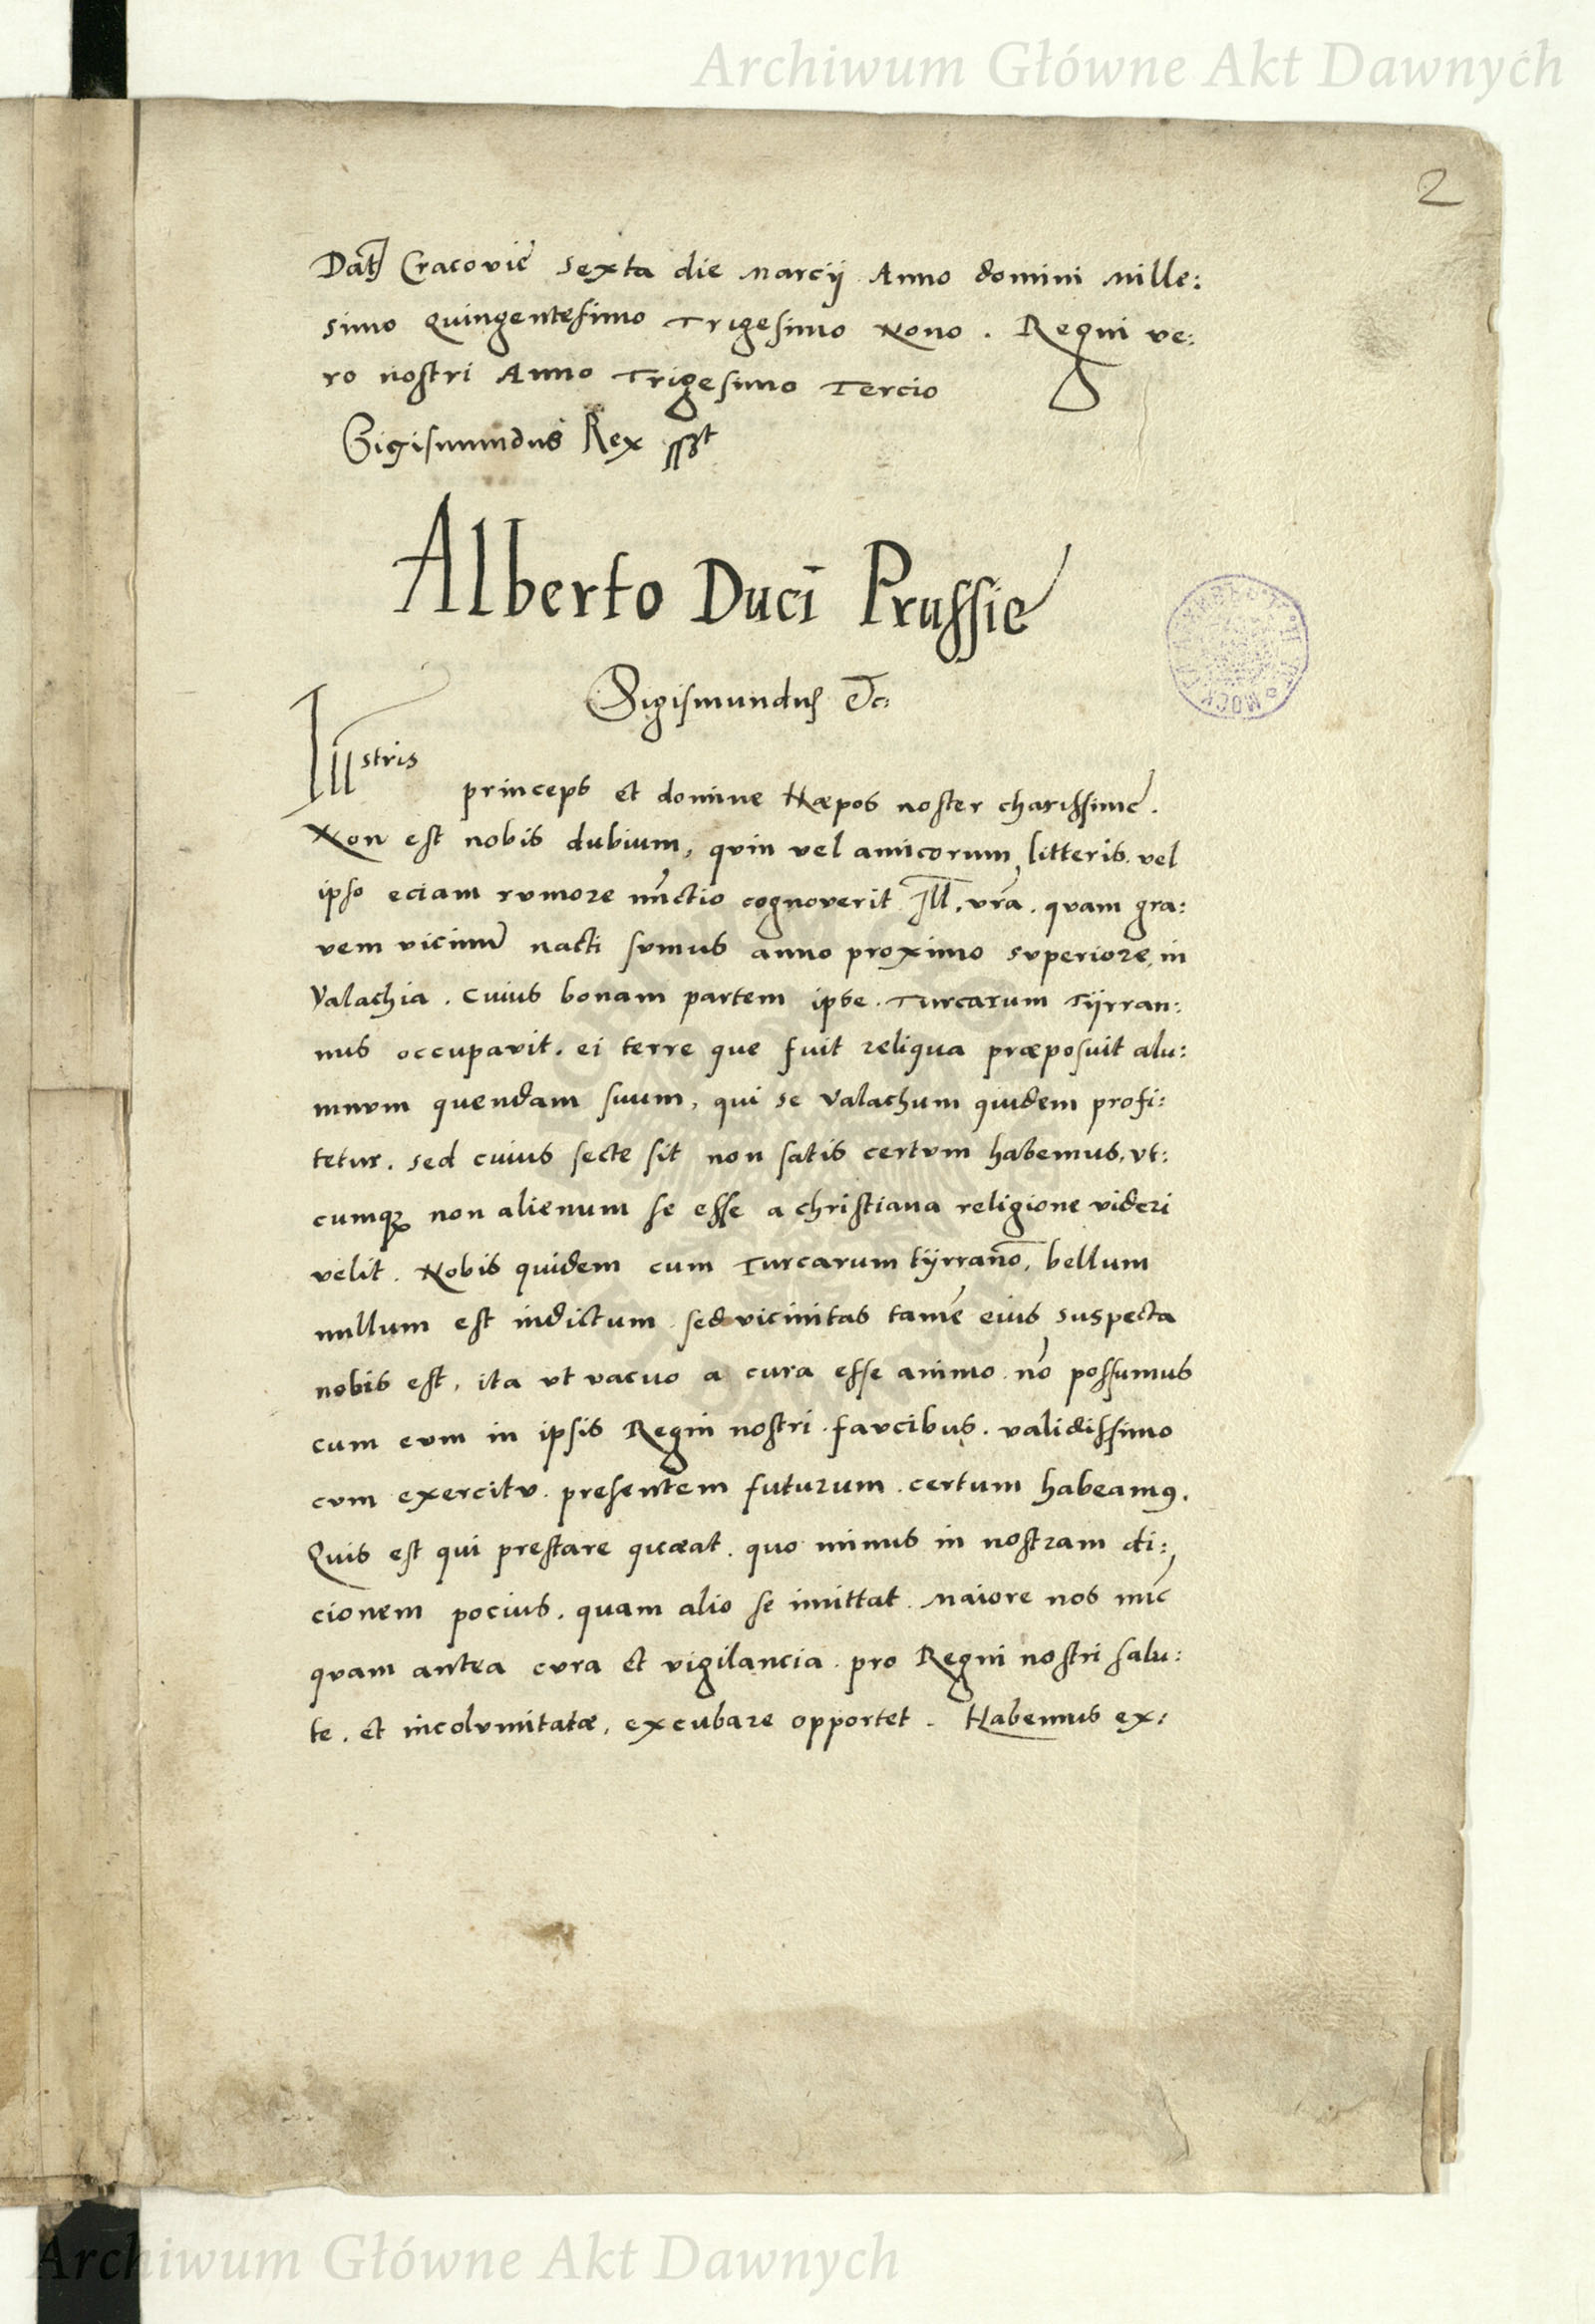 Archiwum Główne Akt Dawnych
2
Dat Cracovie sexta die Marcij Anno domini Mille:
simo Quingentesimo Trigesimo Nono. Regni ve:
ro nostri Anno Trigesimo Tercio
Sigismundus Rex sst
Alberto Duci Prussie
Sigismundus Etc
Illustris
princeps et domine Næpos noster charissime.
Non est nobis dubium, quin vel amicorum litteris vel
ipso eciam rumore nūctio cognoverit Ill. vrā. quam gra:
vem vicinū nacti sumus anno proximo superiore, in
Valachia. Cuius bonam partem ipse. Turcarum Tÿrran:
nus occupavit. ei terre que fuit reliqua præposuit alu:
mnum quendam suum, qui se Valachum quidem profi:
tetur. Sed cuius secte sit non satis certum habemus, ut:
cumqʒ non alienum se esse a christiana religione videri
velit. Nobis quidem cum Turcarum tÿrranō, bellum
nullum est indictum. sed vicinitas tamē eius suspecta
nobis est, ita ut vacuo a cura esse animo nō possumus
cum eum in ipsis Regni nostri. faucibus. validissimo
cum exercitu. presentem futurum. certum habeamꝰ.
Quis est qui prestare quæat. quo minus in nostram di:
cionem pocius. quam alio se imittat. Maiore nos nūc
quam antea cura et vigilancia. pro Regni nostri salu:
te. et incolumitatæ, excubare opportet. Habemus ex:
Archiwum Główne Akt Dawnych